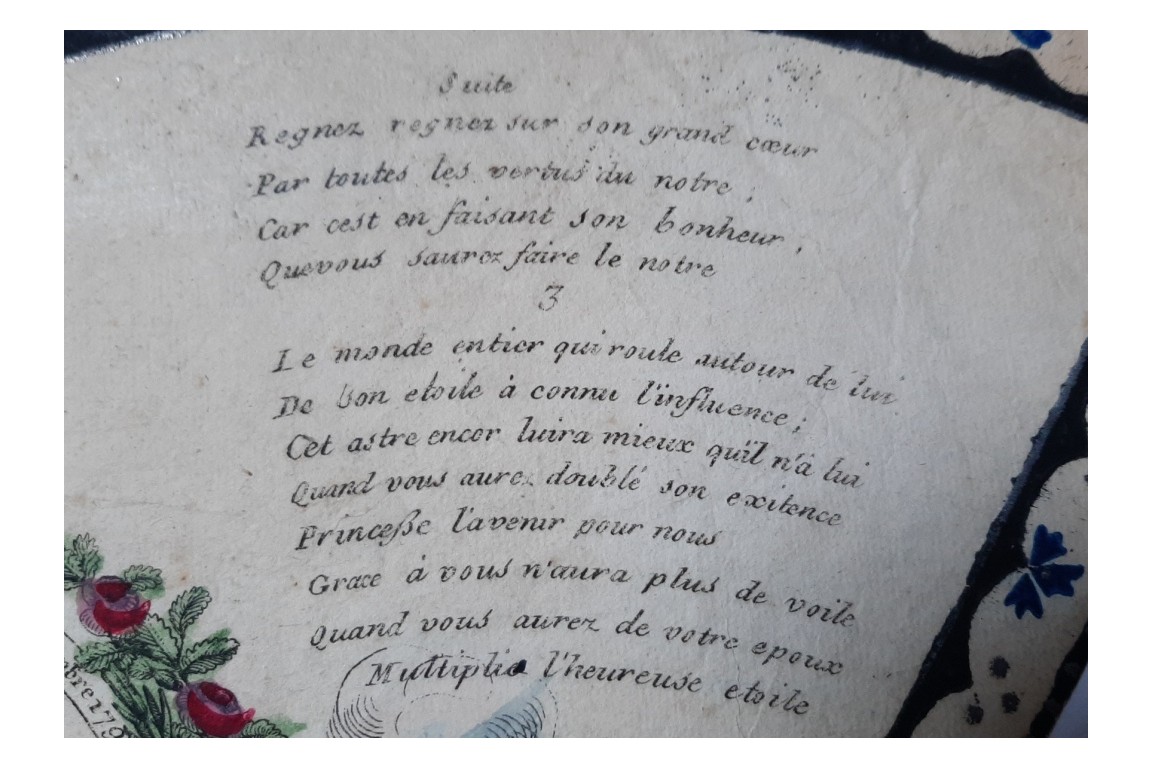 Suite
Regnez regnez sur son grand cœur
Par toutes les vertus du notre;
Car cest en faisant son bonheur,
Quevous saurez faire le notre
3
Le monde entier qui roule autour de lui
De son etoile à connu l'influence;
Cet astre encor luira mieux quïl n'à lui
Quand vous aurez doublé son exitence
Princeſse l'avenir pour nous
Grace à vous n'aura plus de voile
Quand vous aurez de votre epoux
Multiplie l'heureuse etoile
bre 179